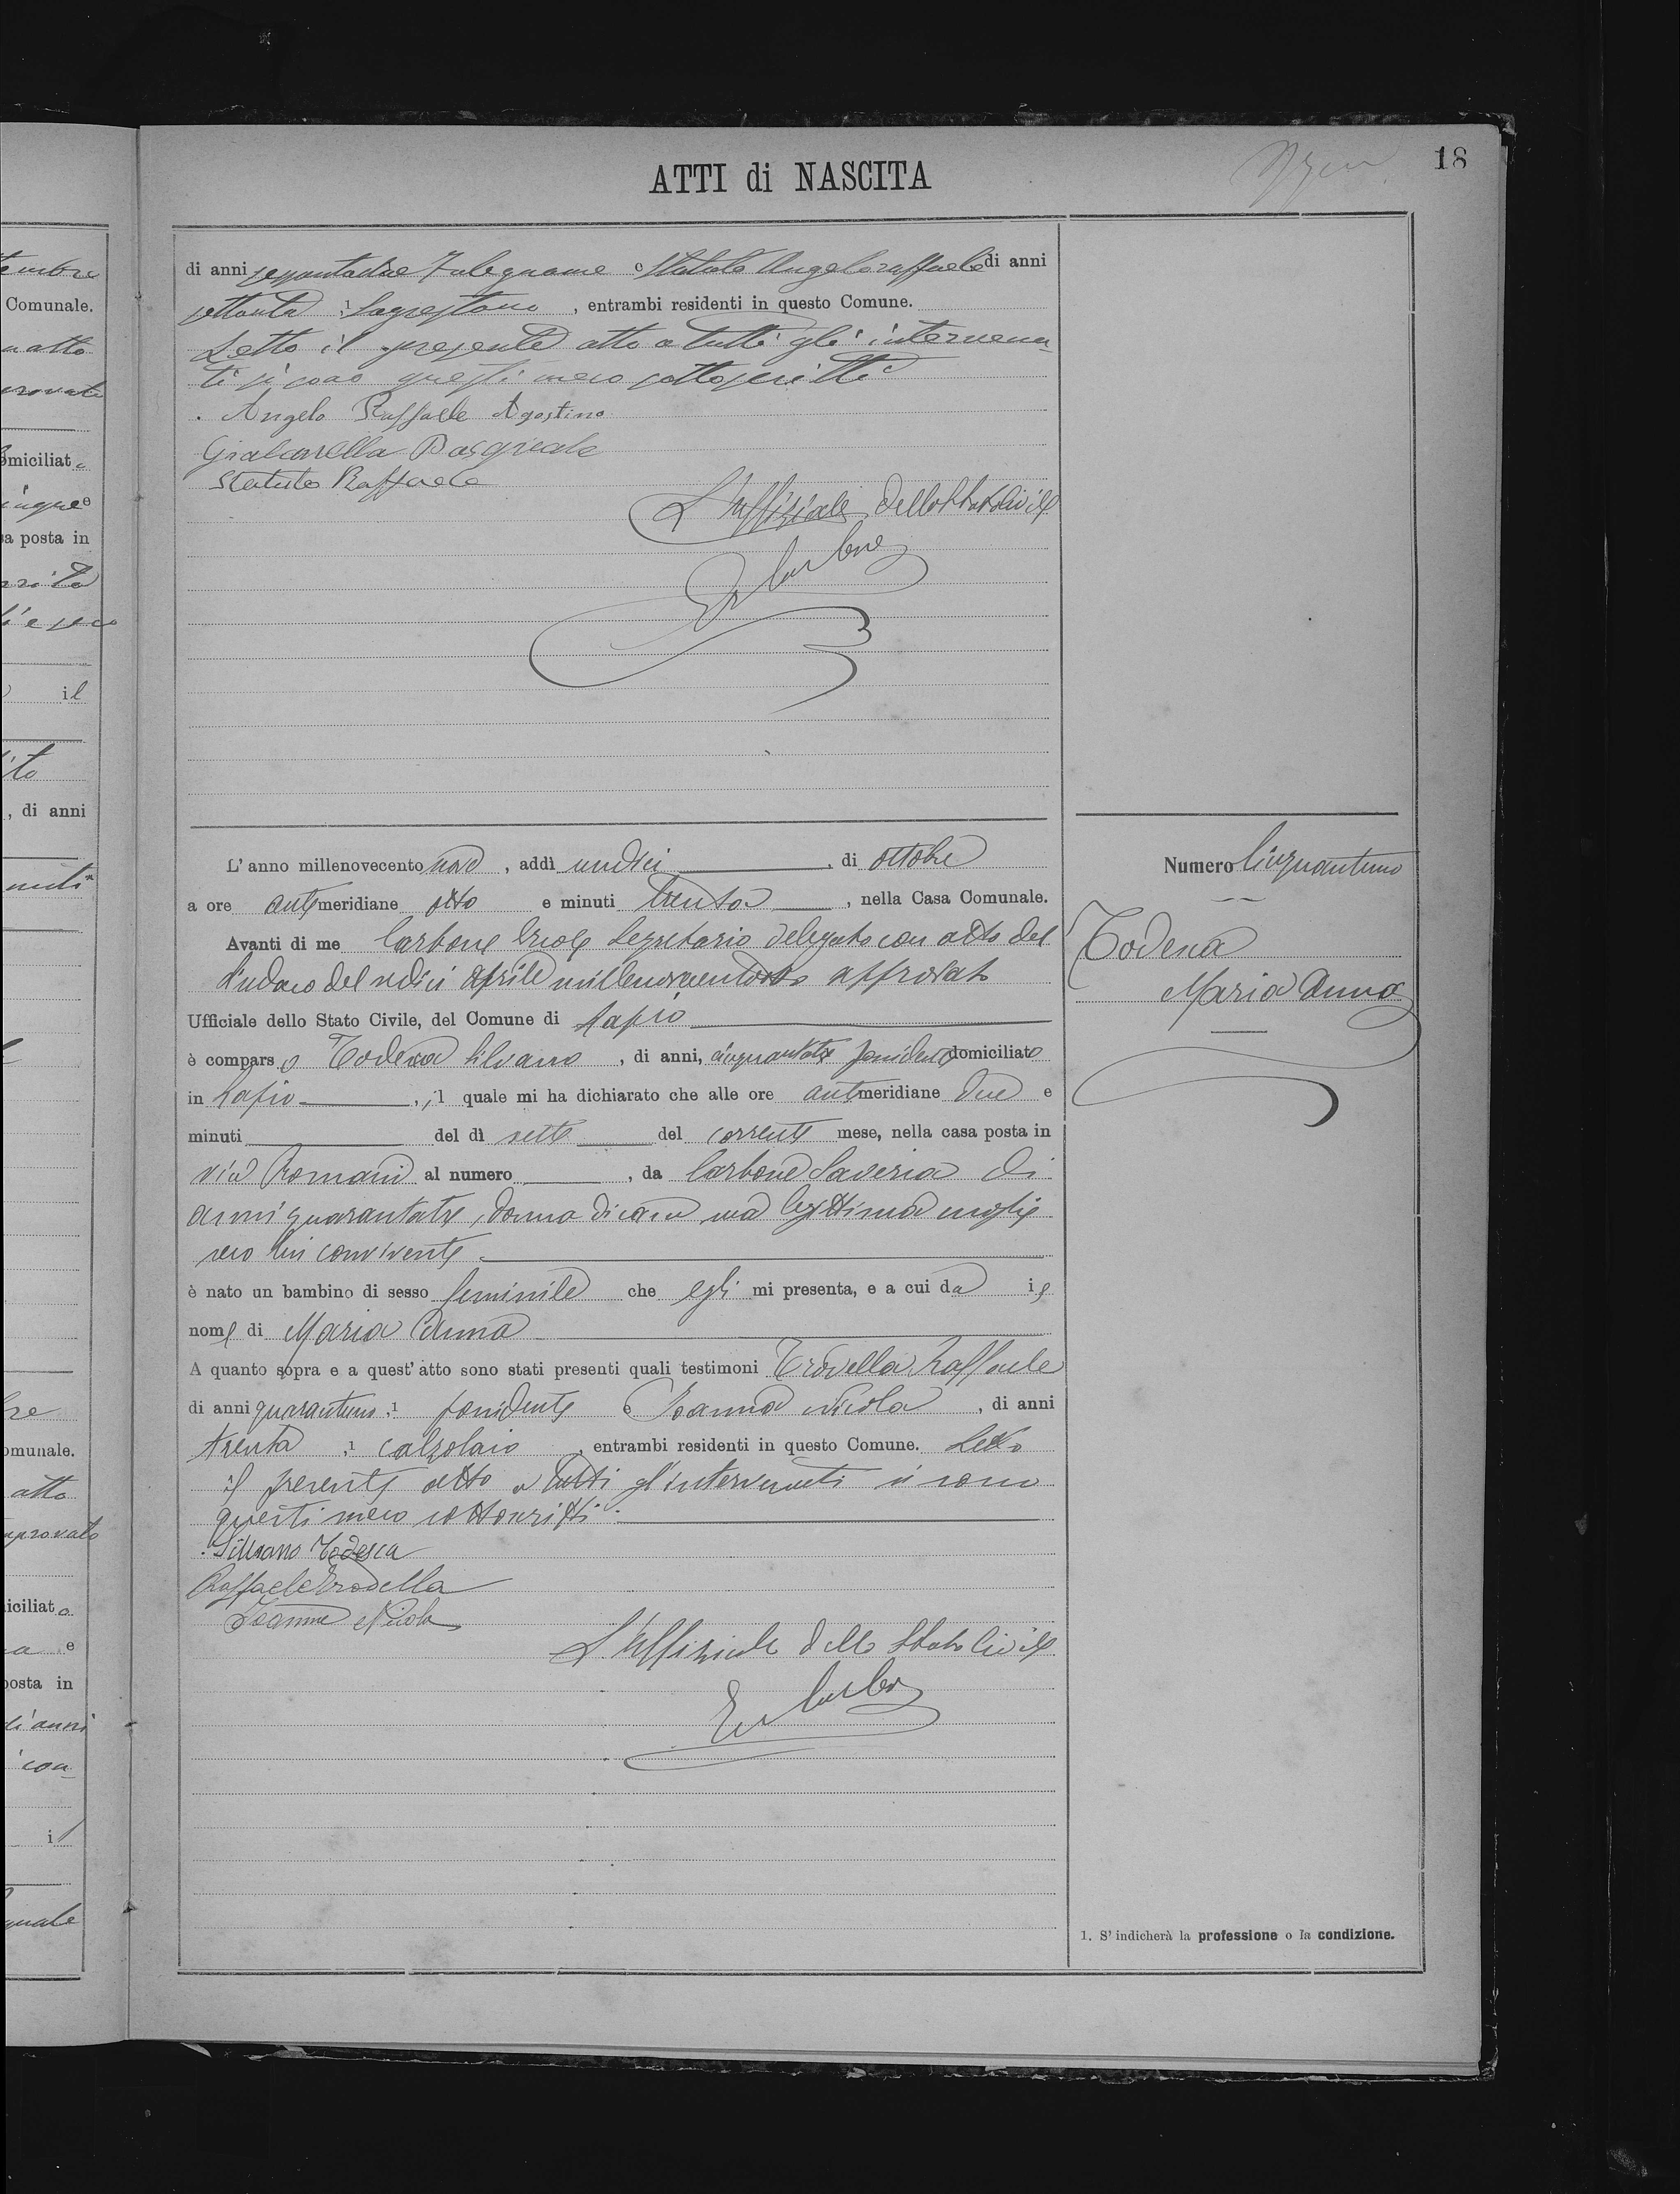 ATTI di NASCITA
18
di anni sessantadue Falegname e Statuto Angeloraffaele di anni
settanta 1 Sagrestano, entrambi residenti in questo Comune.
Letto il presente atto a tutti gli intervenu-
ti si sono questi meco sottoscritti
Angelo Raffaele Agostino
Gialanella Pasquale
Statuto Raffaele
L'Uffiziale dello Stato Civile
Carbone
L'anno millenovecento nove, addì undici, di ottobre
a ore antimeridiane otto e minuti trenta, nella Casa Comunale.
Avanti di me Carbone Ercole Segretario delegato con atto del
Sindaco del sedici Aprile millenovecentootto approvato
Ufficiale dello Stato Civile, del Comune di Lapio
è comparso Todesca Silvano, di anni, cinquantatre possidente domiciliato
in Lapio, il quale mi ha dichiarato che alle ore antimeridiane due e
minuti del dì sette del corrente mese, nella casa posta in
via Romani al numero, da Carbone Saveria di
anni quarantatre, donna di casa sua legittima moglie
seco lui convivente
è nato un bambino di sesso feminile che egli mi presenta, e a cui da il
nome di Maria Anna
A quanto sopra e a quest'atto sono stati presenti quali testimoni Trodella Raffaele
di anni quarantuno, 1 possidente e Ioanna Nicola, di anni
trenta, 1 calzolaio, entrambi residenti in questo Comune. Letto
il presente atto a tutti gl'intervenuti si sono
questi meco sottoscritti.
Silvano Todesca
Raffaele Trodella
Ioanna Nicola
L'Uffiziale dello Stato Civile
Er Carbone
Numero Cinquantuno
Todesca
Maria Anna
1. S'indicherà la professione o la condizione.
embre
Comunale.
atto
omiciliat
cinque e
sa posta in
il
ito
, di anni
omunale.
atto
approvato
iciliato
a e
posta in
di anni
con
i